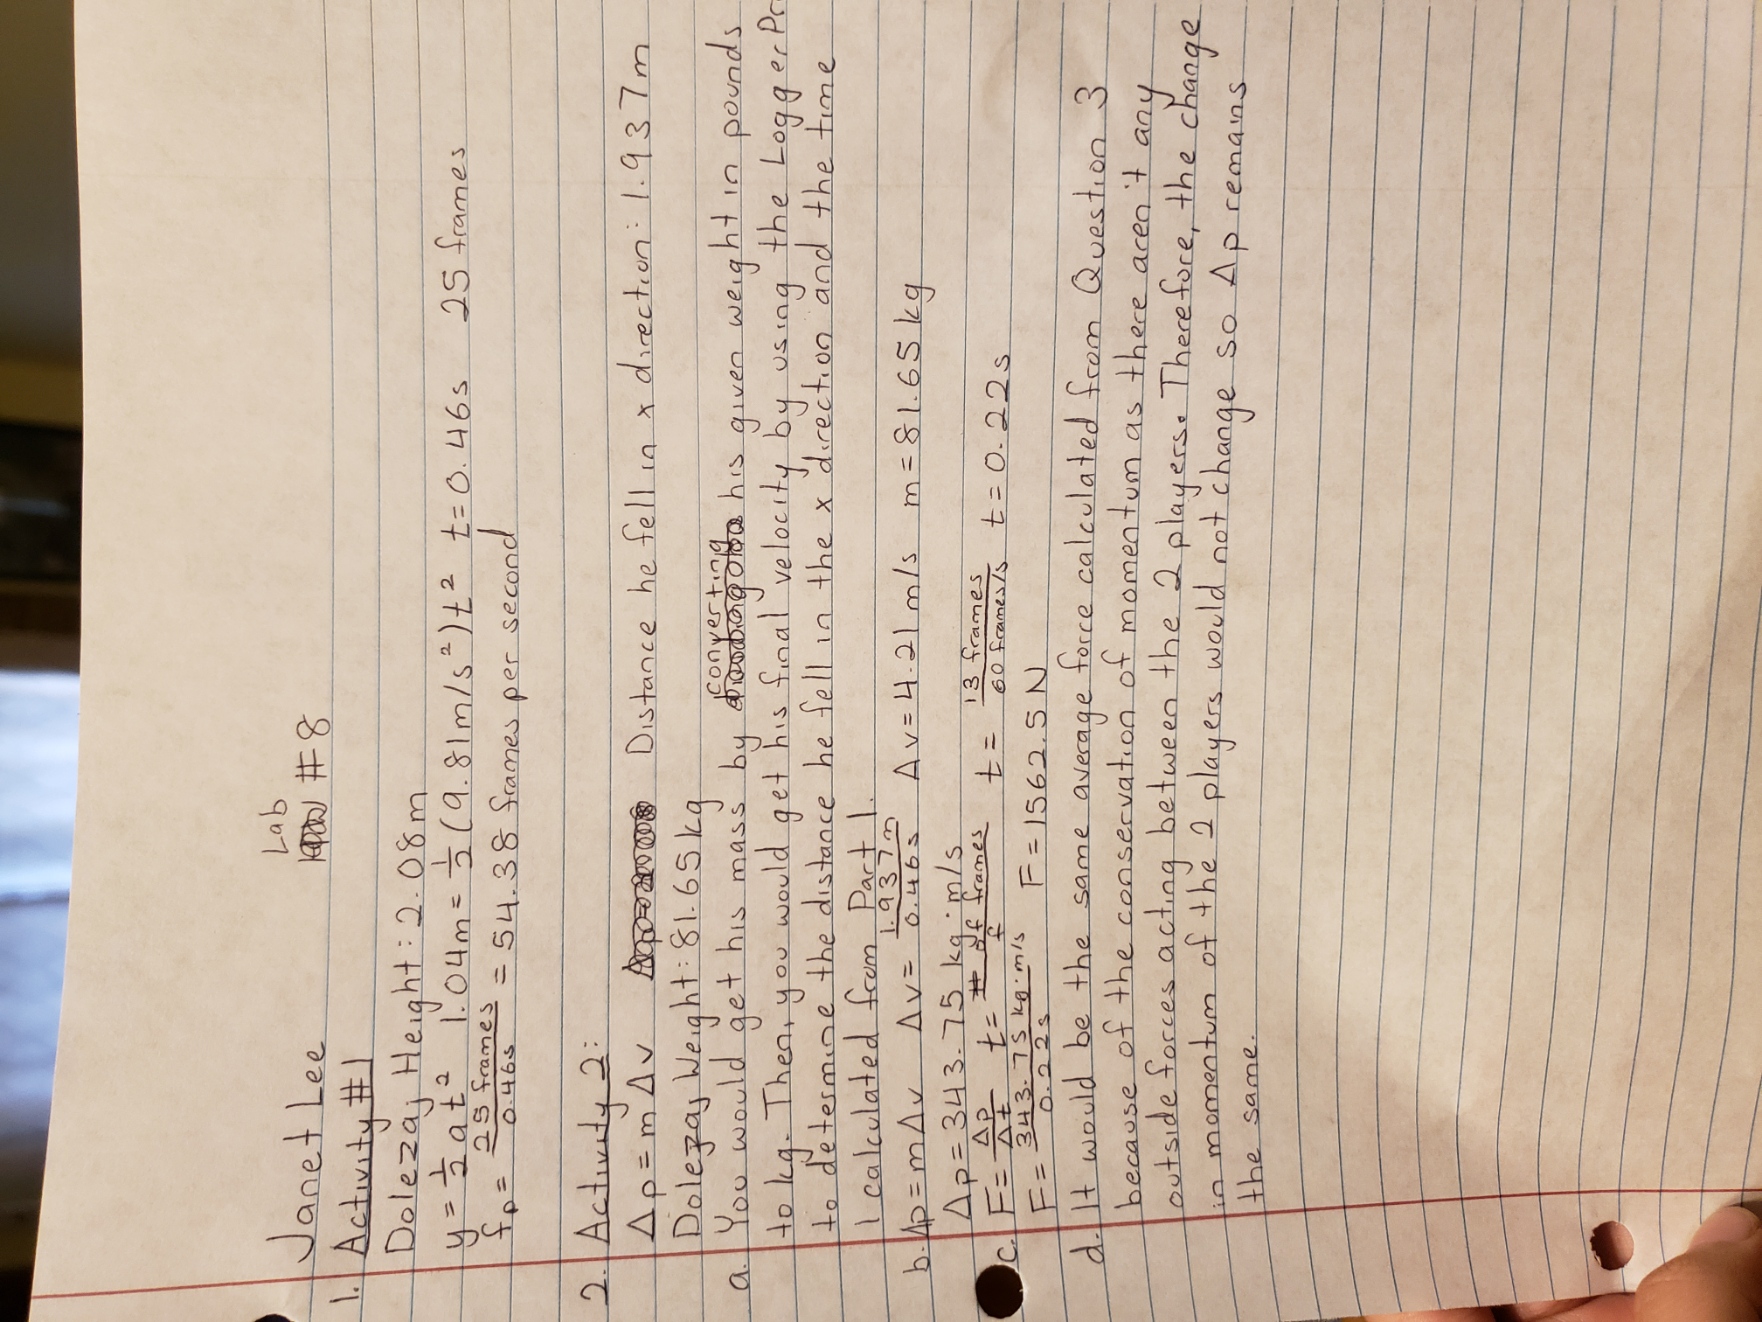 Lab
Janet Lee #8
1. Activity #1
Dolezaj Height: 2.08m
y = 1/2 at² 1.04m = 1/2 (9.81m/s²)t² t=0.46s 25 frames
fp = 25 frames/0.46s = 54.38 frames per second
2. Activity 2:
Δp = mΔv Distance he fell in x direction: 1.937m
Dolezaj Weight: 81.65kg
a. You would get his mass by converting his given weight in pounds
to kg. Then, you would get his final velocity by using the LoggerPr
to determine the distance he fell in the x direction and the time
I calculated from Part 1.
b. Δp = mΔv Δv = 1.937m/0.46s Δv = 4.21 m/s m = 81.65 kg
Δp = 343.75 kg·m/s
c. F = Δp/Δt t = # of frames/f t = 13 frames/60 frames/s t = 0.22s
F = 343.75 kg·m/s/0.22s F = 1562.5 N
d. It would be the same average force calculated from Question 3
because of the conservation of momentum as there aren't any
outside forces acting between the 2 players. Therefore, the change
in momentum of the 2 players would not change so Δp remains
the same.